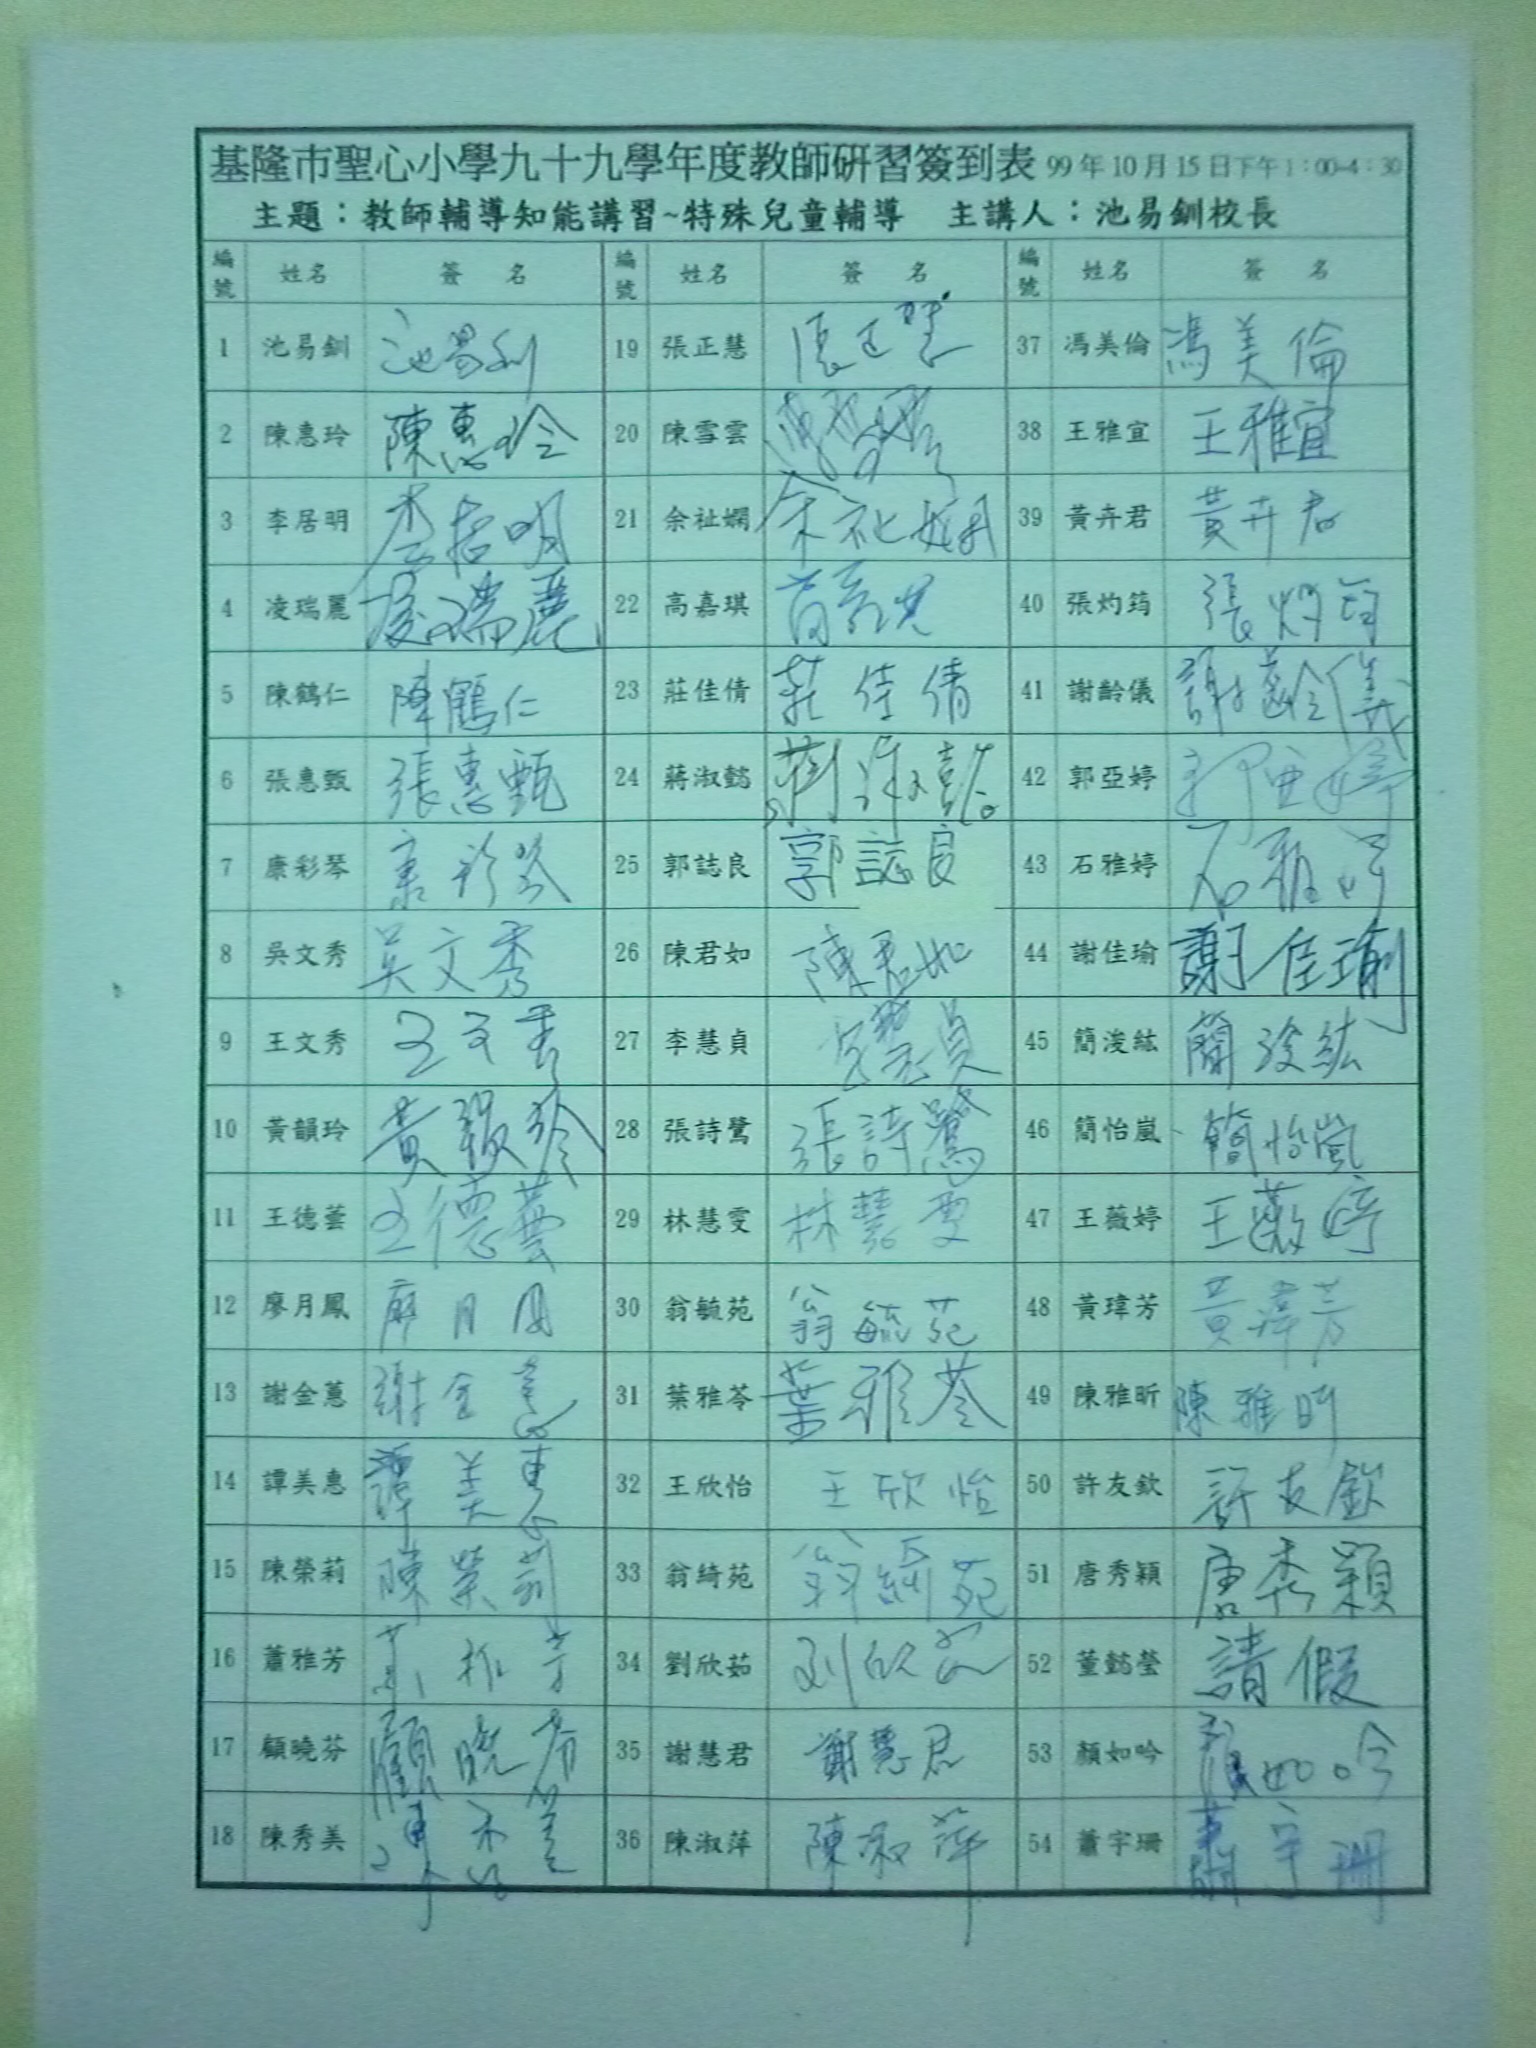 基隆市聖心小學九十九學年度教師研習簽到表 99年10月15日下午1：00-4：30
主題：教師輔導知能講習~特殊兒童輔導 主講人：池易釧校長
編號 姓名 簽名 編號 姓名 簽名 編號 姓名 簽名
1 池易釧 池易釧 19 張正慧 張正慧 37 馮美倫 馮美倫
2 陳惠玲 陳惠玲 20 陳雪雲 陳雪雲 38 王雅宜 王雅宜
3 李居明 李居明 21 余祉嫻 余祉嫻 39 黃卉君 黃卉君
4 凌瑞麗 凌瑞麗 22 高嘉琪 高嘉琪 40 張灼筠 張灼筠
5 陳鶴仁 陳鶴仁 23 莊佳倩 莊佳倩 41 謝齡儀 謝齡儀
6 張惠甄 張惠甄 24 蔣淑懿 蔣淑懿 42 郭亞婷 郭亞婷
7 康彩琴 康彩琴 25 郭誌良 郭誌良 43 石雅婷 石雅婷
8 吳文秀 吳文秀 26 陳君如 陳君如 44 謝佳瑜 謝佳瑜
9 王文秀 王文秀 27 李慧貞 李慧貞 45 簡浚紘 簡浚紘
10 黃韻玲 黃韻玲 28 張詩鷺 張詩鷺 46 簡怡嵐 簡怡嵐
11 王德蕓 王德蕓 29 林慧雯 林慧雯 47 王薇婷 王薇婷
12 廖月鳳 廖月鳳 30 翁毓苑 翁毓苑 48 黃瑋芳 黃瑋芳
13 謝金蔥 謝金蔥 31 葉雅苓 葉雅苓 49 陳雅昕 陳雅昕
14 譚美惠 譚美惠 32 王欣怡 王欣怡 50 許友欽 許友欽
15 陳榮莉 陳榮莉 33 翁綺苑 翁綺苑 51 唐秀穎 唐秀穎
16 蕭雅芳 蕭雅芳 34 劉欣茹 刘欣茹 52 董懿瑩 請假
17 顧曉芬 顧曉芬 35 謝慧君 謝慧君 53 顏如吟 顏如吟
18 陳秀美 陳秀美 36 陳淑萍 陳淑萍 54 蕭宇珊 蕭宇珊